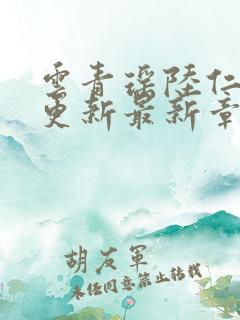 雲青瑶陆仁
更新最新章
胡友軍
未经同意禁止转载